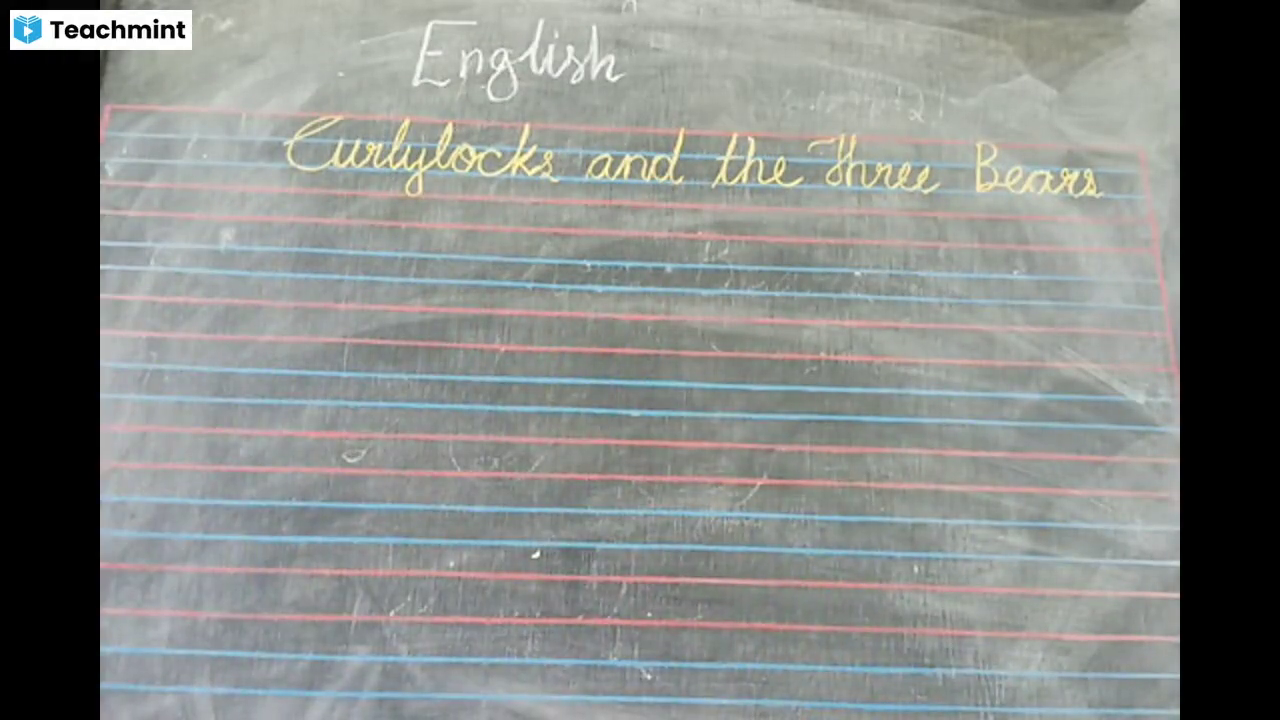 Teachmint
English
Curlylocks and the Three Bears